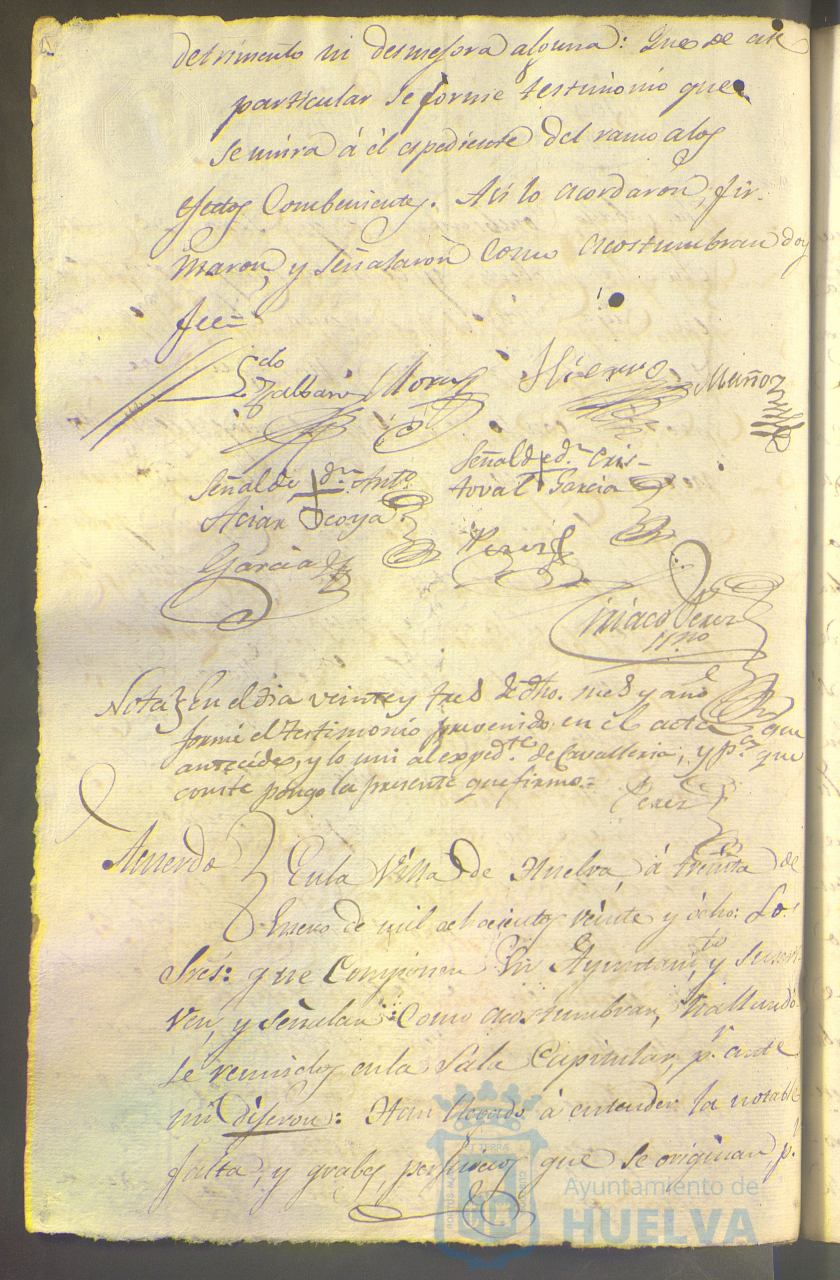 detrimento ni desmejora alguna: Que de este
particular se forme testimonio que
se unira á él espediente del ramo alos
efectos Combenientes. Asi lo acordaron, fir-
maron, y señalaron como acostumbran doy
fee=
Zalbaro Mora Hierro Muñoz
Señal de + dn. Anto.
Señal de + dn. Cris-
toval Garcia
Garcia Perez
Ciriaco Perez
Nota En el dia veinte y tres de dho. mes y año
formé el testimonio prevenido en el acta que
antecede, y lo uni al expedte. de Cavalleria, y pa. que
conste pongo la presente que firmo.=
Perez
Acuerdo
En la Villa de Huelva, á treinta de
Enero de mil ochocientos veinte y ócho: Los
Sres: que Componen su Ayuntamto., y suscri-
ven, y señalan Como acostumbran, hallando-
se reunidos en la Sala Capitular, pr. ante
mi dijeron: Han llegado á entender la notable
falta, y grabes perjuicios que se originan, pr.
Ayuntamiento de
HUELVA